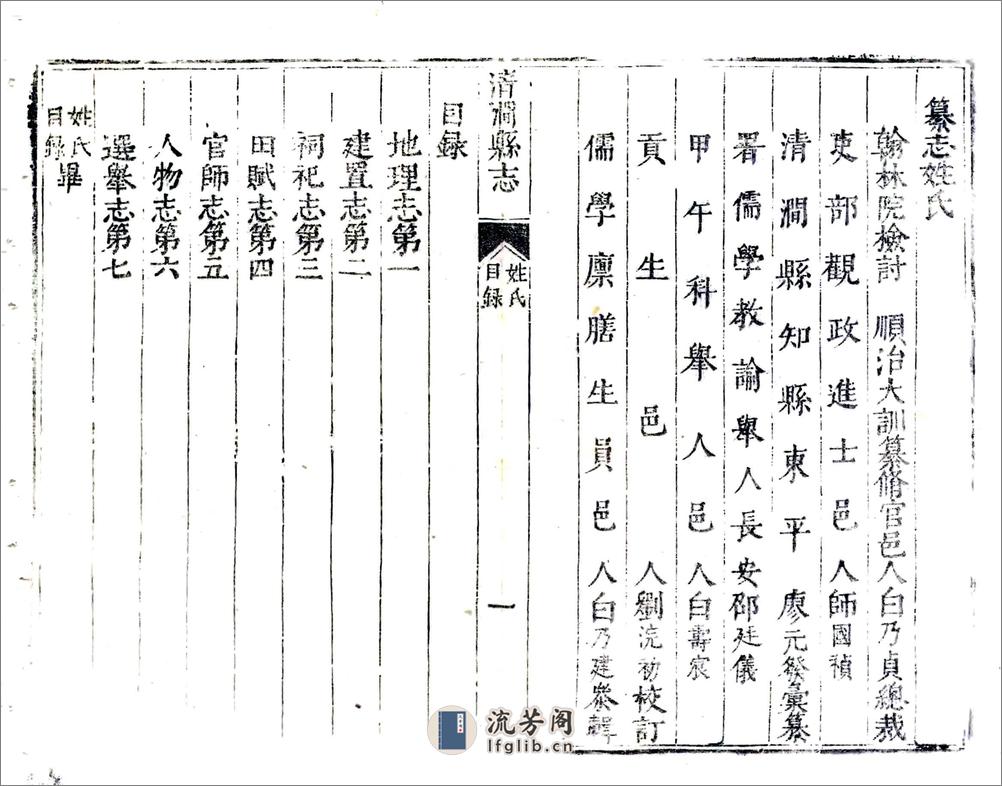 纂志姓氏
翰林院檢討 順治大訓纂脩官邑人白乃貞總裁
吏部觀政進士邑人師國禎
清澗縣知縣東平廖元發彙纂
署儒學教諭舉人長安邵廷儀
甲午科舉人邑人白壽宸
貢生邑人劉浣初校訂
儒學廪膳生員邑人白乃建叅輯
清澗縣志
姓氏
目録
一
目録
地理志第一
建置志第二
祠祀志第三
田賦志第四
官師志第五
人物志第六
選舉志第七
姓氏
目録
畢
流芳阁
lfglib.cn